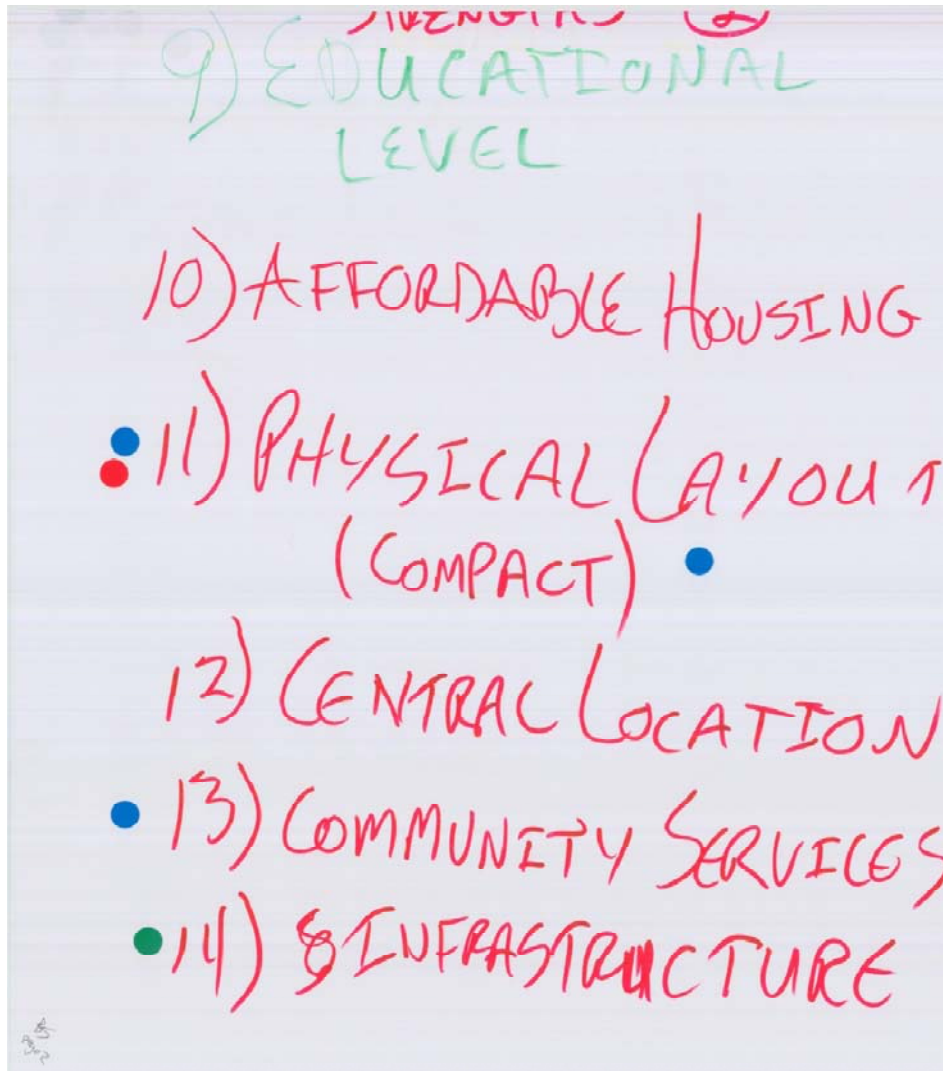 STRENGTHS 2
9) EDUCATIONAL
LEVEL
10) AFFORDABLE HOUSING
11) PHYSICAL LAYOUT
(COMPACT)
12) CENTRAL LOCATION
13) COMMUNITY SERVICES
14) & INFRASTRUCTURE